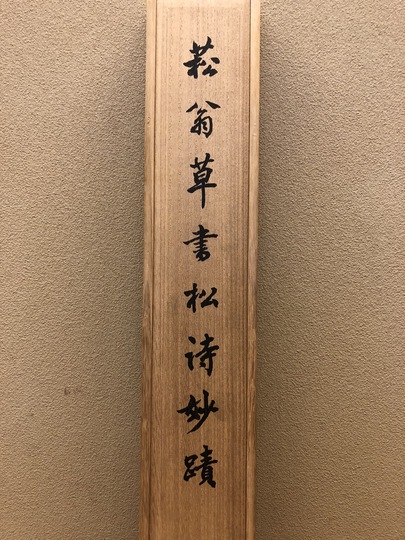 菘翁草書松诗妙蹟